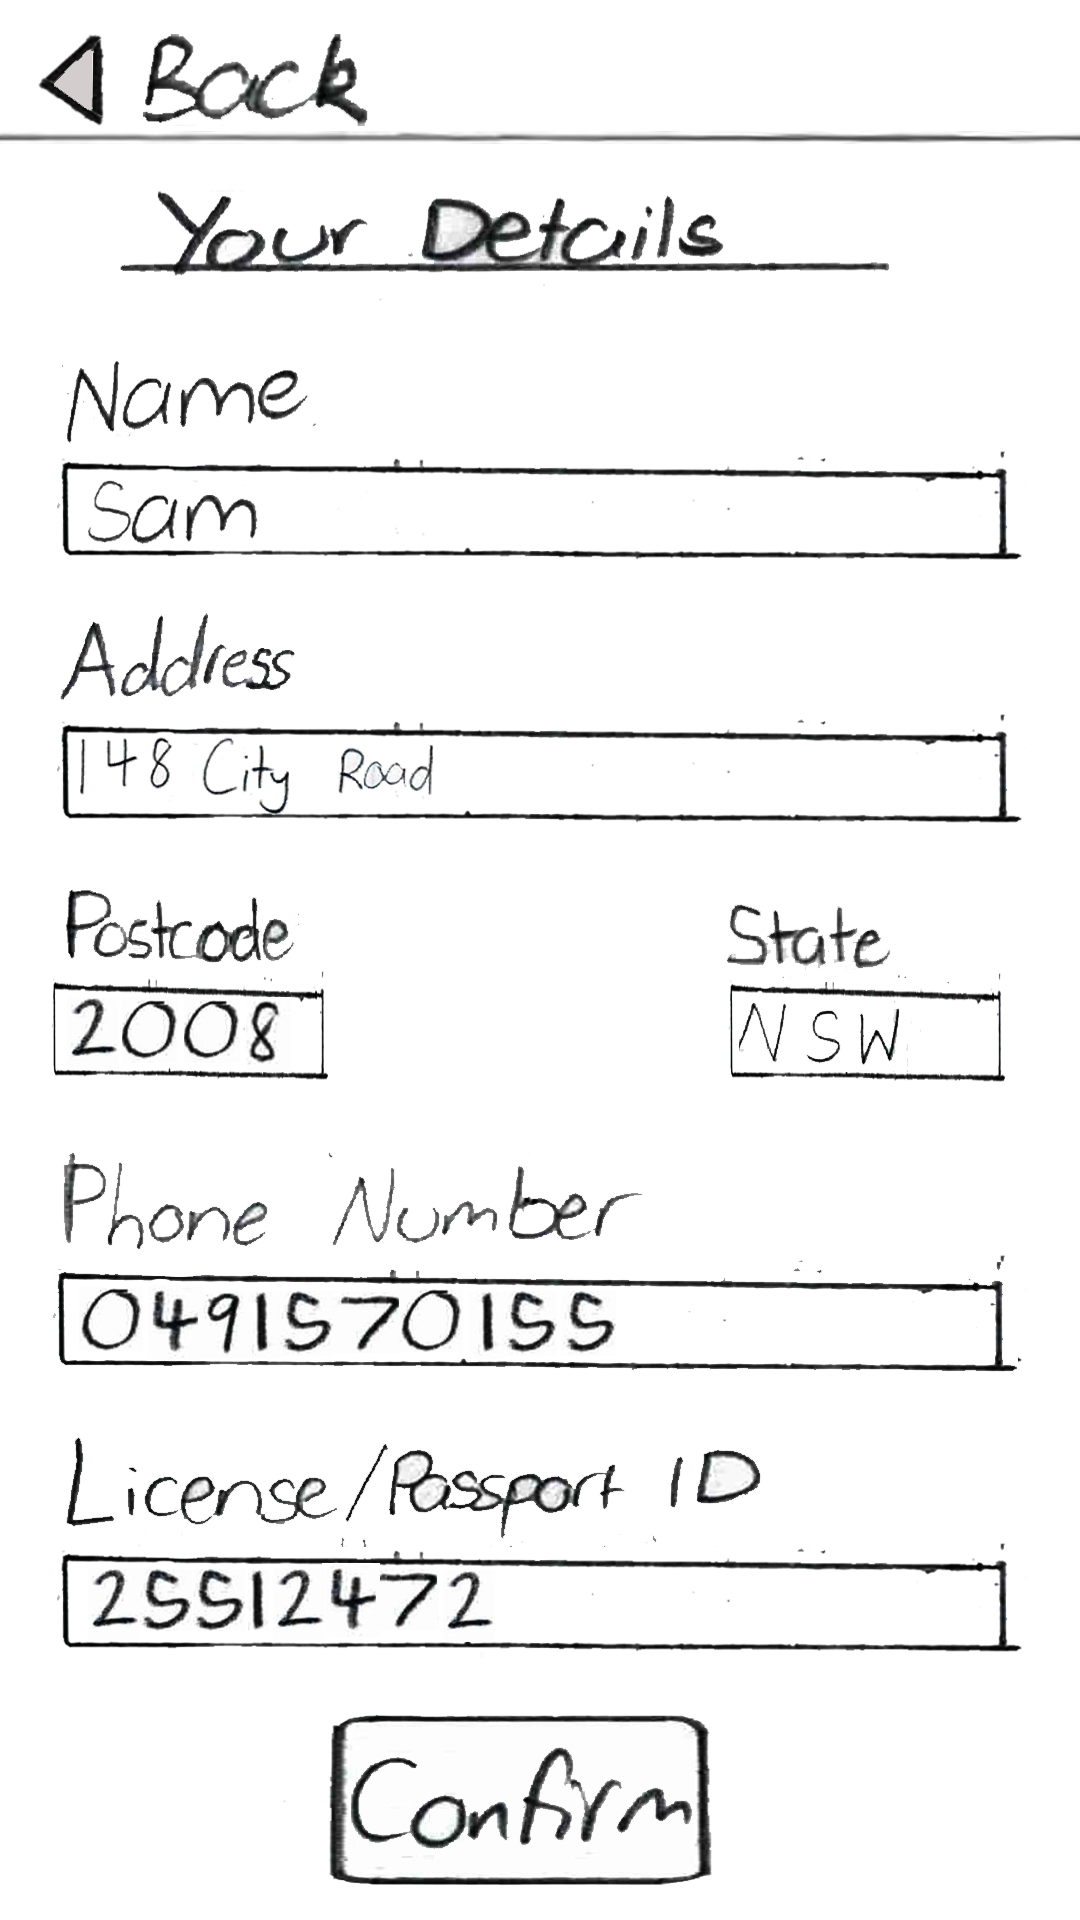 Back
Your Details
Name
Sam
Address
148 City Road
Postcode State
2008 NSW
Phone Number
0491570155
License/Passport ID
25512472
Confirm